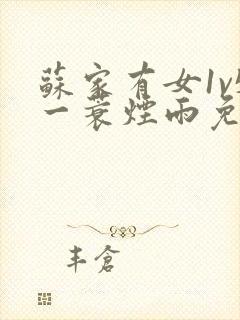 蘇家有女1v
一蓑煙雨免
丰倉